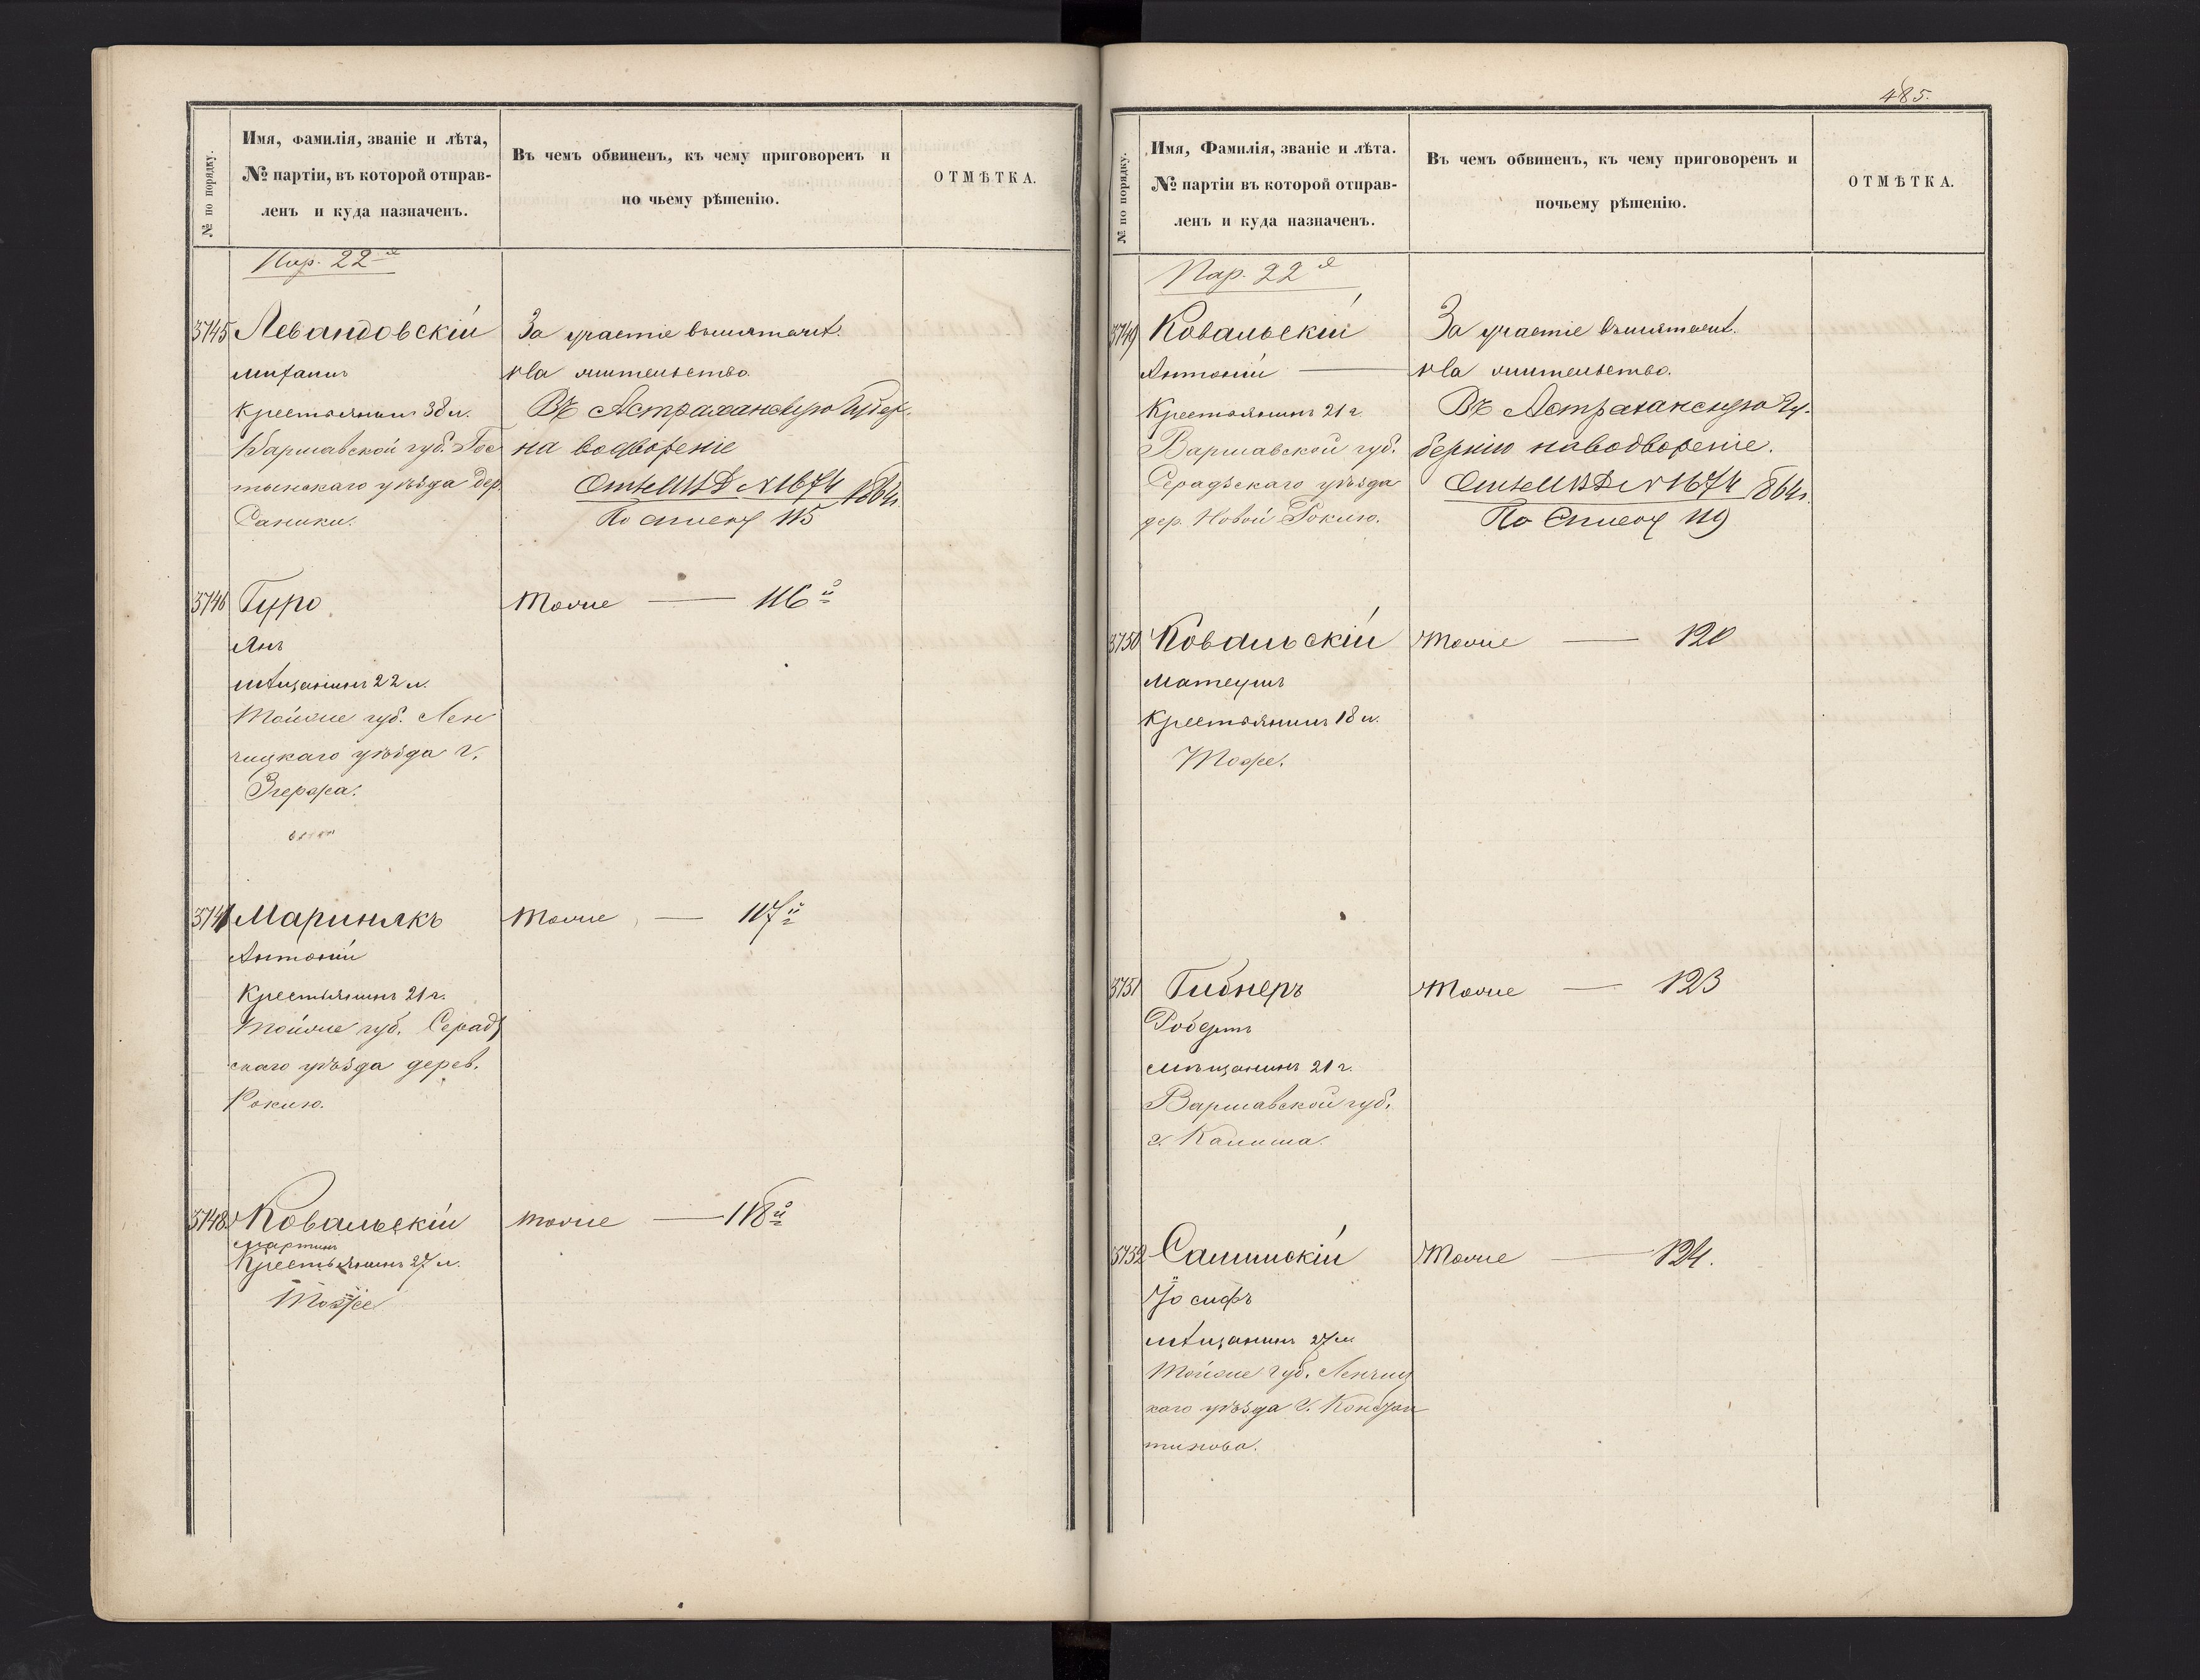 № по порядку.
Имя, фамилія, званіе и лѣта,
№ партіи, въ которой отправ-
ленъ и куда назначенъ.
Въ чемъ обвиненъ, къ чему приговоренъ и
по чьему рѣшенію.
ОТМѢТКА.
Пар. 22я
3745 Левандовскій
Михаилъ
Крестьянинъ 38 л.
Варшавской губ. Гос
тынскаго уѣзда дер.
Саники.
За участіе въ мятеж.
На жительство
Въ Астраханскую Губер.
на водвореніе
От. М В Д № 1674 1864 г.
По списку 115
3746 Гуро
Янъ
мѣщанинъ 22 л.
Тойже губ. Лен
чицкаго уѣзда г.
Згержа.
Тоже — 116й
3747 Маринякъ
Антоній
Крестьянинъ 21 г.
Тойже губ. Серадз
скаго уѣзда дерев.
Тоже — 117й
3748 Ковальскій
Мартинъ
Крестьянинъ 27 л.
Тоже
Тоже — 118й
485.
№ по порядку.
Имя, Фамилія, званіе и лѣта.
№ партіи въ которой отправ-
ленъ и куда назначенъ.
Въ чемъ обвиненъ, къ чему приговоренъ и
почьему рѣшенію.
ОТМѢТКА.
Пар. 22я
3749 Ковальскій
Антоній
Крестьянинъ 21 г.
Варшавской губ.
Серадзскаго уѣзда
дер. Новой
За участіе въ мятеж.
На жительство.
Въ Астраханскую Гу-
бернію на водвореніе.
От. М В Д № 1674 1864 г.
По Списку 119
3750 Ковальскій
Матеушъ
Крестьянинъ 18 л.
Тоже.
Тоже — 120
3751 Гибнеръ
Робертъ
мѣщанинъ 21 г.
Варшавской губ.
г. Калиша.
Тоже — 123
3752
Іосифъ
мѣщанинъ 27 л.
Тойже губ. Ленчиц
каго уѣзда г. Констан
тинова.
Тоже — 124.